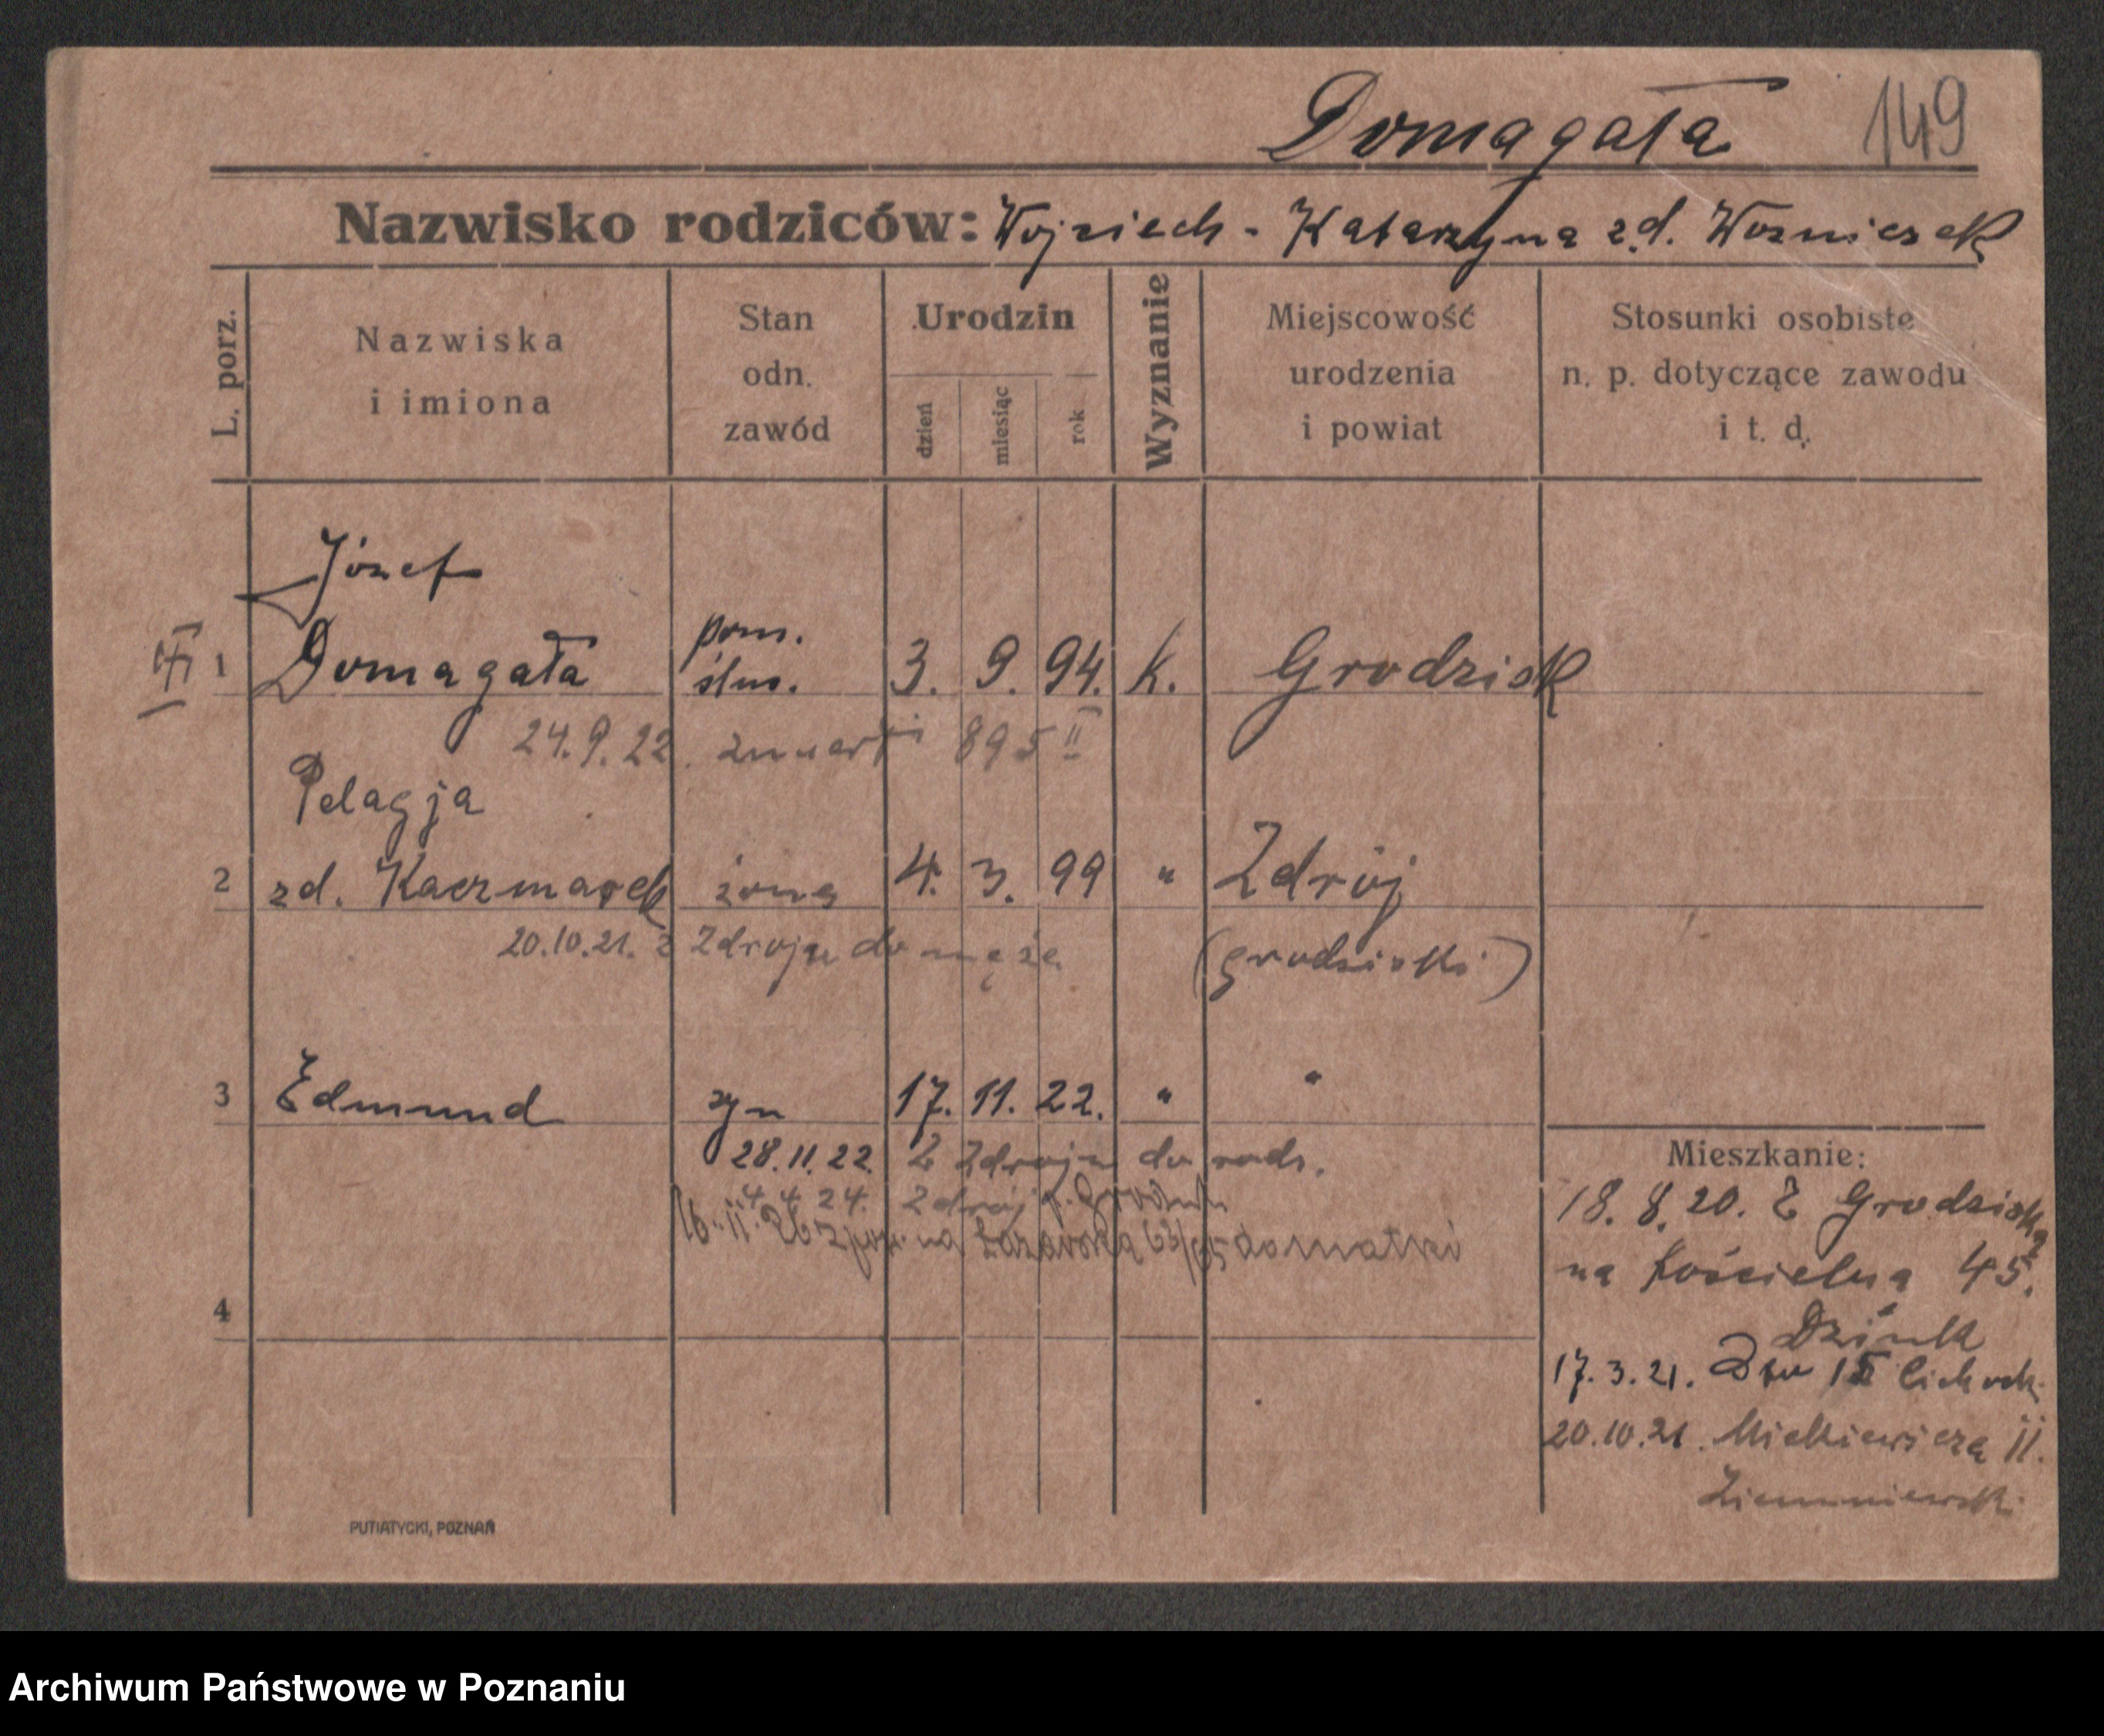 Domagała 149
Nazwisko rodziców: Wojciech - Katarzyna z.d. Wozniczak
L. porz.
Nazwiska
i imiona
Stan
odn.
zawód
Urodzin
dzień
miesiąc
rok
Wyznanie
Miejscowość
urodzenia
i powiat
Stosunki osobiste
n. p. dotyczące zawodu
i t. d.
Józef
1 Domagała pom. ślus. 3. 9. 94. k. Grodzisk
24.9.22. zmarł 895 II
Pelagja
2 zd. Kaczmarek żona 4. 3. 99 " Zdrój
20.10.21. z Zdroju do męża (grodziski)
3 Edmund syn 17. 11. 22. " "
28.11.22. z Zdroju do rodz.
4.4.24. Zdrój p. Grodzisk
16.11.26 z na Łazarska 63/65 do matki
4
Mieszkanie:
18.8.20. z Grodziska
na Kościelna 45.
17.3.21.
20.10.21. Mickiewicza 11.
Ziemniewski
PUTIATYCKI, POZNAŃ
Archiwum Państwowe w Poznaniu